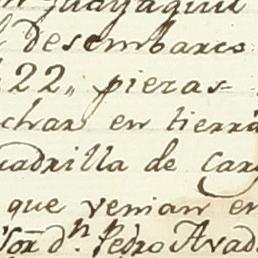 n Guayaquil
desembarco
22,, piezas
char en tierra
uadrilla de Car
que venian en
Por dⁿ Pedro Avad